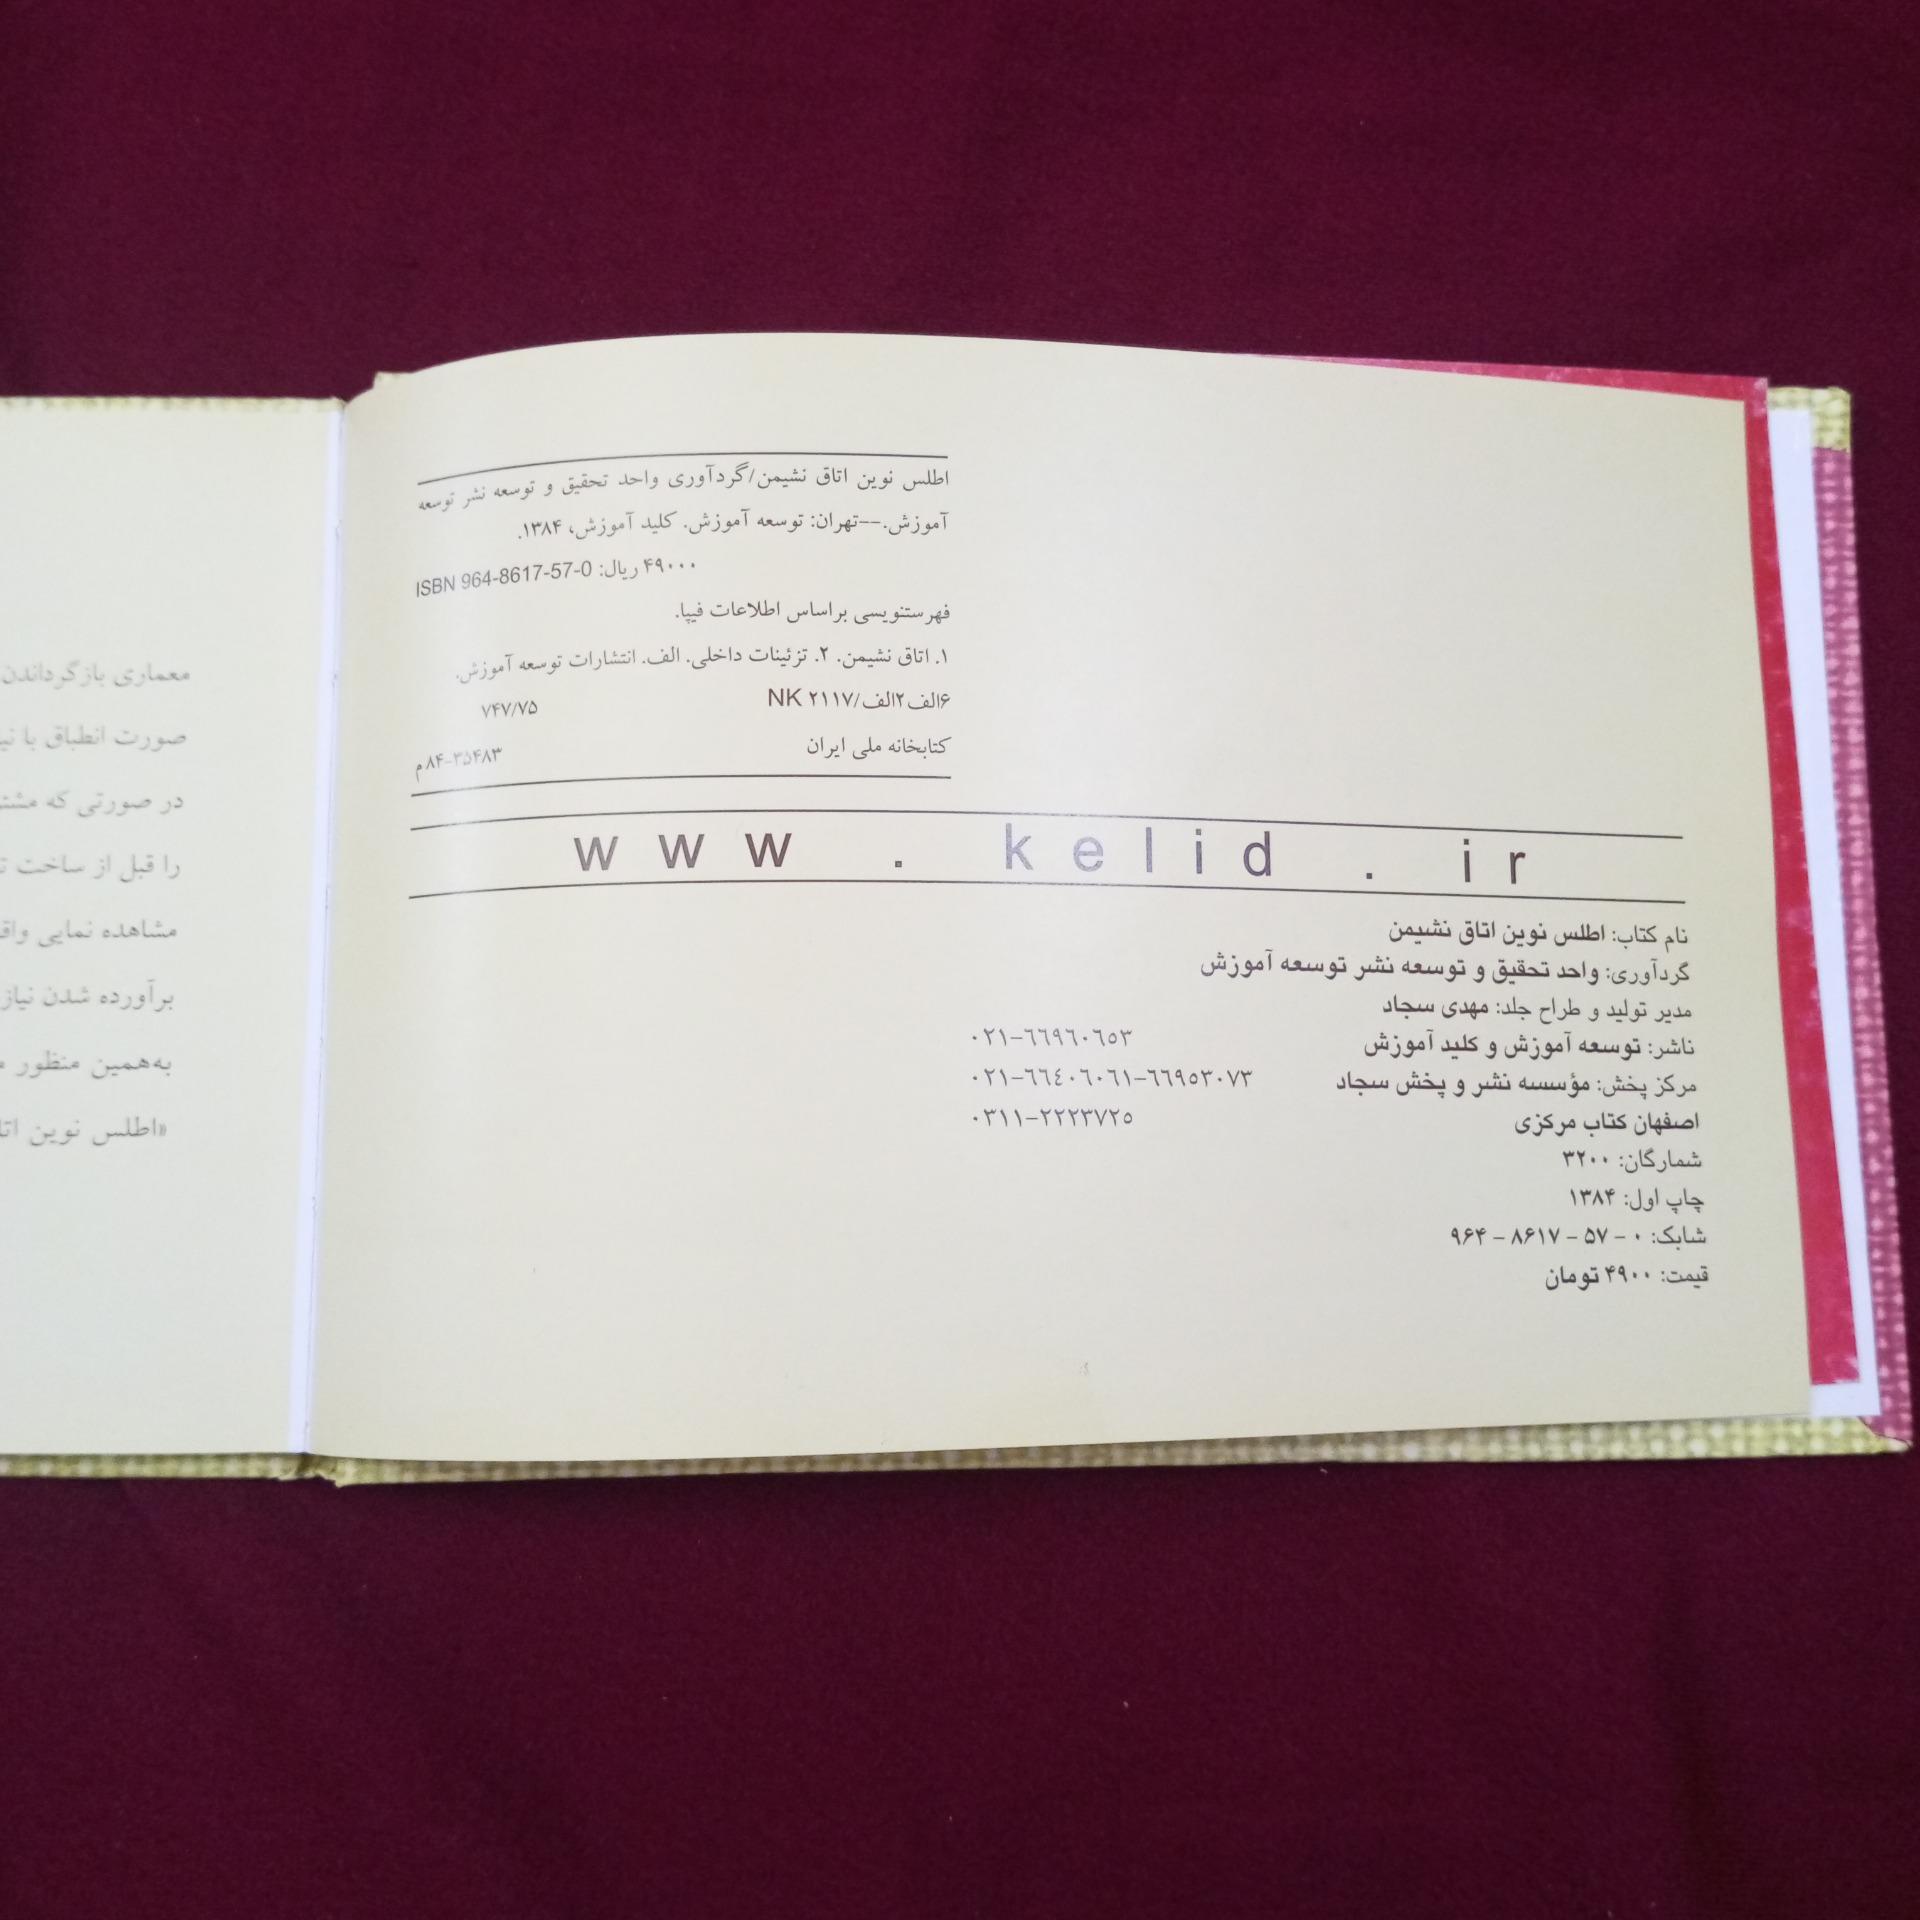 اطلس نوین اتاق نشیمن/گردآوری واحد تحقیق و توسعه نشر توسعه
آموزش.--تهران: توسعه آموزش. کلید آموزش، ۱۳۸۴.
۴۹۰۰۰ ریال: ISBN 964-8617-57-0
فهرستنویسی براساس اطلاعات فیپا.
۱. اتاق نشیمن. ۲. تزئینات داخلی. الف. انتشارات توسعه آموزش.
۶الف۲الف/NK ۲۱۱۷ ۷۴۷/۷۵
کتابخانه ملی ایران ۳۵۴۸۳-۸۴م
www.kelid.ir
نام کتاب: اطلس نوین اتاق نشیمن
گردآوری: واحد تحقیق و توسعه نشر توسعه آموزش
مدیر تولید و طراح جلد: مهدی سجاد
ناشر: توسعه آموزش و کلید آموزش ۰۲۱-٦٦٩٦٠٦٥٣
مرکز پخش: مؤسسه نشر و پخش سجاد ۰۲۱-٦٦٤٠٦٠٦١-٦٦٩٥٣٠٧٣
اصفهان کتاب مرکزی ٠٣١١-٢٢٢٣٧٢٥
شمارگان: ۳۲۰۰
چاپ اول: ۱۳۸۴
شابک: ۰ - ۵۷ - ۸۶۱۷ - ۹۶۴
قیمت: ۴۹۰۰ تومان
معماری بازگرداندن
صورت انطباق با
در صورتی که
را قبل از ساخت
مشاهده نمایی
برآورده شدن نیاز
به‌همین منظور
«اطلس نوین